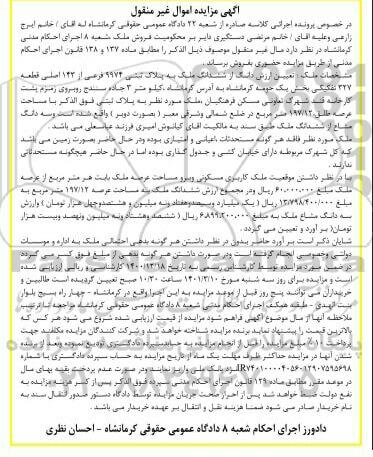 آگهی مزایده اموال غیر منقول
در خصوص پرونده اجرائی کلاسه صادره از شعبه ۲۲ دادگاه عمومی حقوقی کرمانشاه له آقای / خانم ایرج
زارعی وعلیه آقای / خانم مرتضی دستگیری دایر بر محکومیت فروش ملک شعبه ۸ اجرای احکام مدنی
کرمانشاه در نظر دارد مال غیر منقول موصوف ذیل الذکر را مطابق ماده ۱۳۷ و ۱۳۸ قانون اجرای احکام
مدنی از طریق مزایده حضوری بفروش برساند.
مشخصات ملک : تعیین ارزش دانگ از ششدانگ ملک به پلاک ثبتی ۹۹۷۴ فرعی از ۱۴۲ اصلی قطعه
۳۲۷ تفکیکی بخش یک حومه کرمانشاه به آدرس کرمانشاه ،کیلو متر ۳ جاده سنندج روبروی زمزم پشت
کارخانه قند شهرک تعاونی مسکن فرهنگیان ،ملک مورد نظر به پلاک ثبتی فوق الذکر با مساحت
عرصه طلق ۱۹۷/۱۲ متر مربع در ضلع شمالی وشرقی معبر ( بصورت دوبر ) واقع شده است وسه دانگ
مشاع از ششدانگ ملک طبق سند به مالکیت آقای کیانوش امیری فرزند عباسعلی می باشد .
ملک مورد نظر فاقد هر گونه مستحدثات ،اعیانی و امتیازی بوده ودر حال حاضر بصورت زمین می باشد
که کل شهرک مربوطه دارای خیابان کشی و جدول گذاری بوده اما در حال حاضر هیچگونه مستحدثاتی
ندارند .
با در نظر داشتن موقعیت ملک کاربری مسکونی وبرو مساحت عرصه ملک بابت هر متر مربع از عرصه
ملک مبلغ ۶۰/۰۰۰/۰۰۰ ریال ودر مجموع ارزش ششدانگ ملک به مساحت عرصه ۱۹۷/۱۲ متر مربع به
مبلغ
سه دانگ مشاع ملک به مبلغ
تومان) بر آورد و تعیین می گردد .
شایان ذکر است بر آورد حاضر بدون در نظر داشتن هر گونه بدهی احتمالی ملک به اداره و موسسات
دولتی وخصوصی انجام گرفته است ودر صورت داشتن هر گونه بدهی از مبلغ فوق کسر می گردد
در ضمن مورد مزایده توسط کارشناس رسمی به تاریخ ۱۴۰۰/۱۲/۱۸ کارشناسی و ریالی ارزیابی شده
است و مزایده برای روز سه شنبه مورخ ۱۴۰۱/۳/۱۰ ساعت ۱۰/۳۰ صبح تعیین گردیده است طالبین و
خریداران می توانند پنج روز قبل از موعد مزایده به این اجرا واقع در کرمانشاه - چهار راه بسیج بلوار
بنت الهدی - طبقه همکف اجرای احکام مدنی شعبه ۸ دادگاه عمومی حقوقی کرمانشاه مراجعه تا ترتیب
ملاحظه آنها از مال موضوع آگهی فراهم شود مزایده از قیمت ارزیابی شده شروع می شود هر کس که
بالاترین قیمت را پیشنهاد نماید برنده مزایده شناخته خواهد شد و شرکت کنندگان مزایده مکلفند جهت
پرداخت ۱۰٪ مبلغ مزایده را قبل از انجام مزایده به حساب سپرده دادگستری تودیع نموده وبعد از برنده
شدن آنها در مزایده حداکثر ظرف مهلت یک ماه از تاریخ مزایده به حساب سپرده دادگستری با شماره
در موعد مقرر مطابق ماده ۱۲۹ قانون اجرای احکام مدنی سپرده فوق الذکر پس از کسر هزینه مزایده به
نفع دولت ضبط خواهد شد پس از احراز صحت جریان مزایده توسط دادگاه دستور صدور انتقال سند به
نام خریدار صادر می شود ضمنا هزینه نقل و انتقال بر عهده خریدار می باشد .
دادورز اجرای احکام شعبه ۸ دادگاه عمومی حقوقی کرمانشاه - احسان نظری